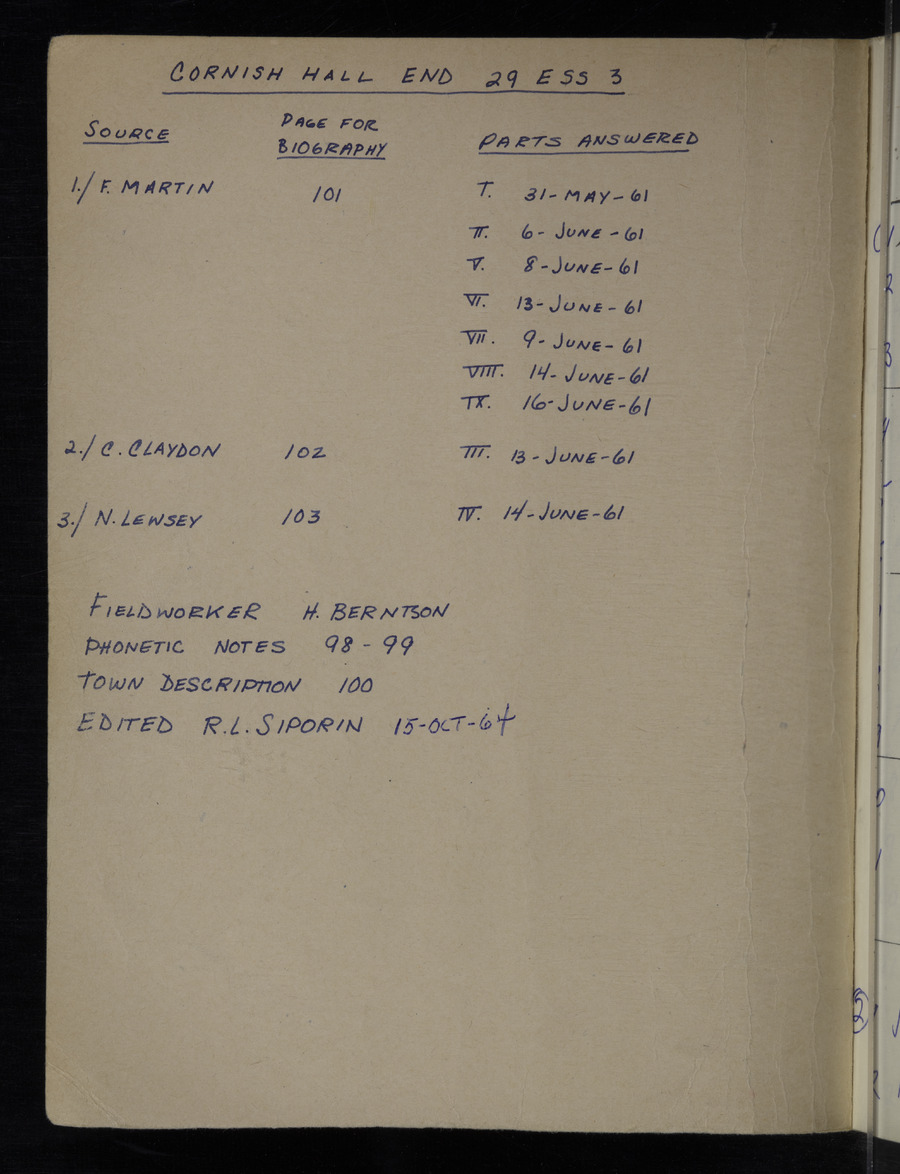 CORNISH HALL END 29 ESS 3
SOURCE PAGE FOR BIOGRAPHY PARTS ANSWERED
1./ F. MARTIN 101 I. 31-MAY-61
II. 6-JUNE-61
V. 8-JUNE-61
VI. 13-JUNE-61
VII. 9-JUNE-61
VIII. 14-JUNE-61
IX. 16-JUNE-61
2./ C. CLAYDON 102 III. 13-JUNE-61
3./ N. LEWSEY 103 IV. 14-JUNE-61
FIELDWORKER H. BERNTSON
PHONETIC NOTES 98-99
TOWN DESCRIPTION 100
EDITED R.L. SIPORIN 15-OCT-64